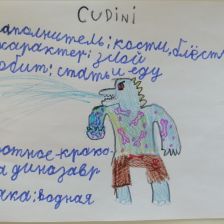 CUDINI
наполнитель; кости, блёст
характер: злой
любит: спать и еду
отное-крако-
а динозавр
ака: водная